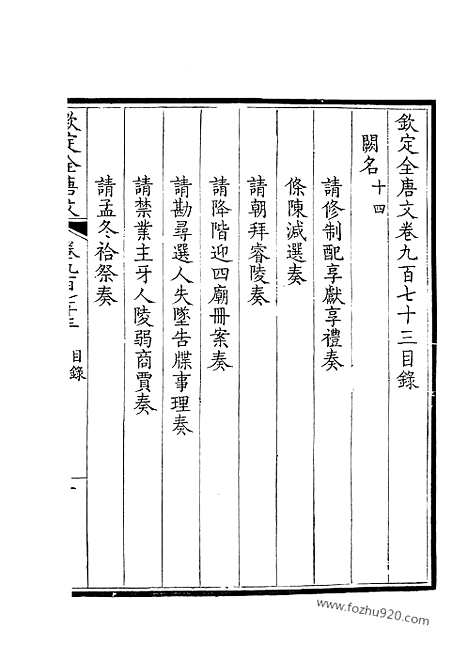 欽定全唐文卷九百七十三目錄
闕名十四
請修制配享獻享禮奏
條陳減選奏
請朝拜睿陵奏
請降階迎四廟冊案奏
請勘尋選人失墜告牒事理奏
請禁業主牙人陵弱商賈奏
請孟冬祫祭奏
欽定全唐文
卷九百七十三
目錄
一
www.fozhu920.com